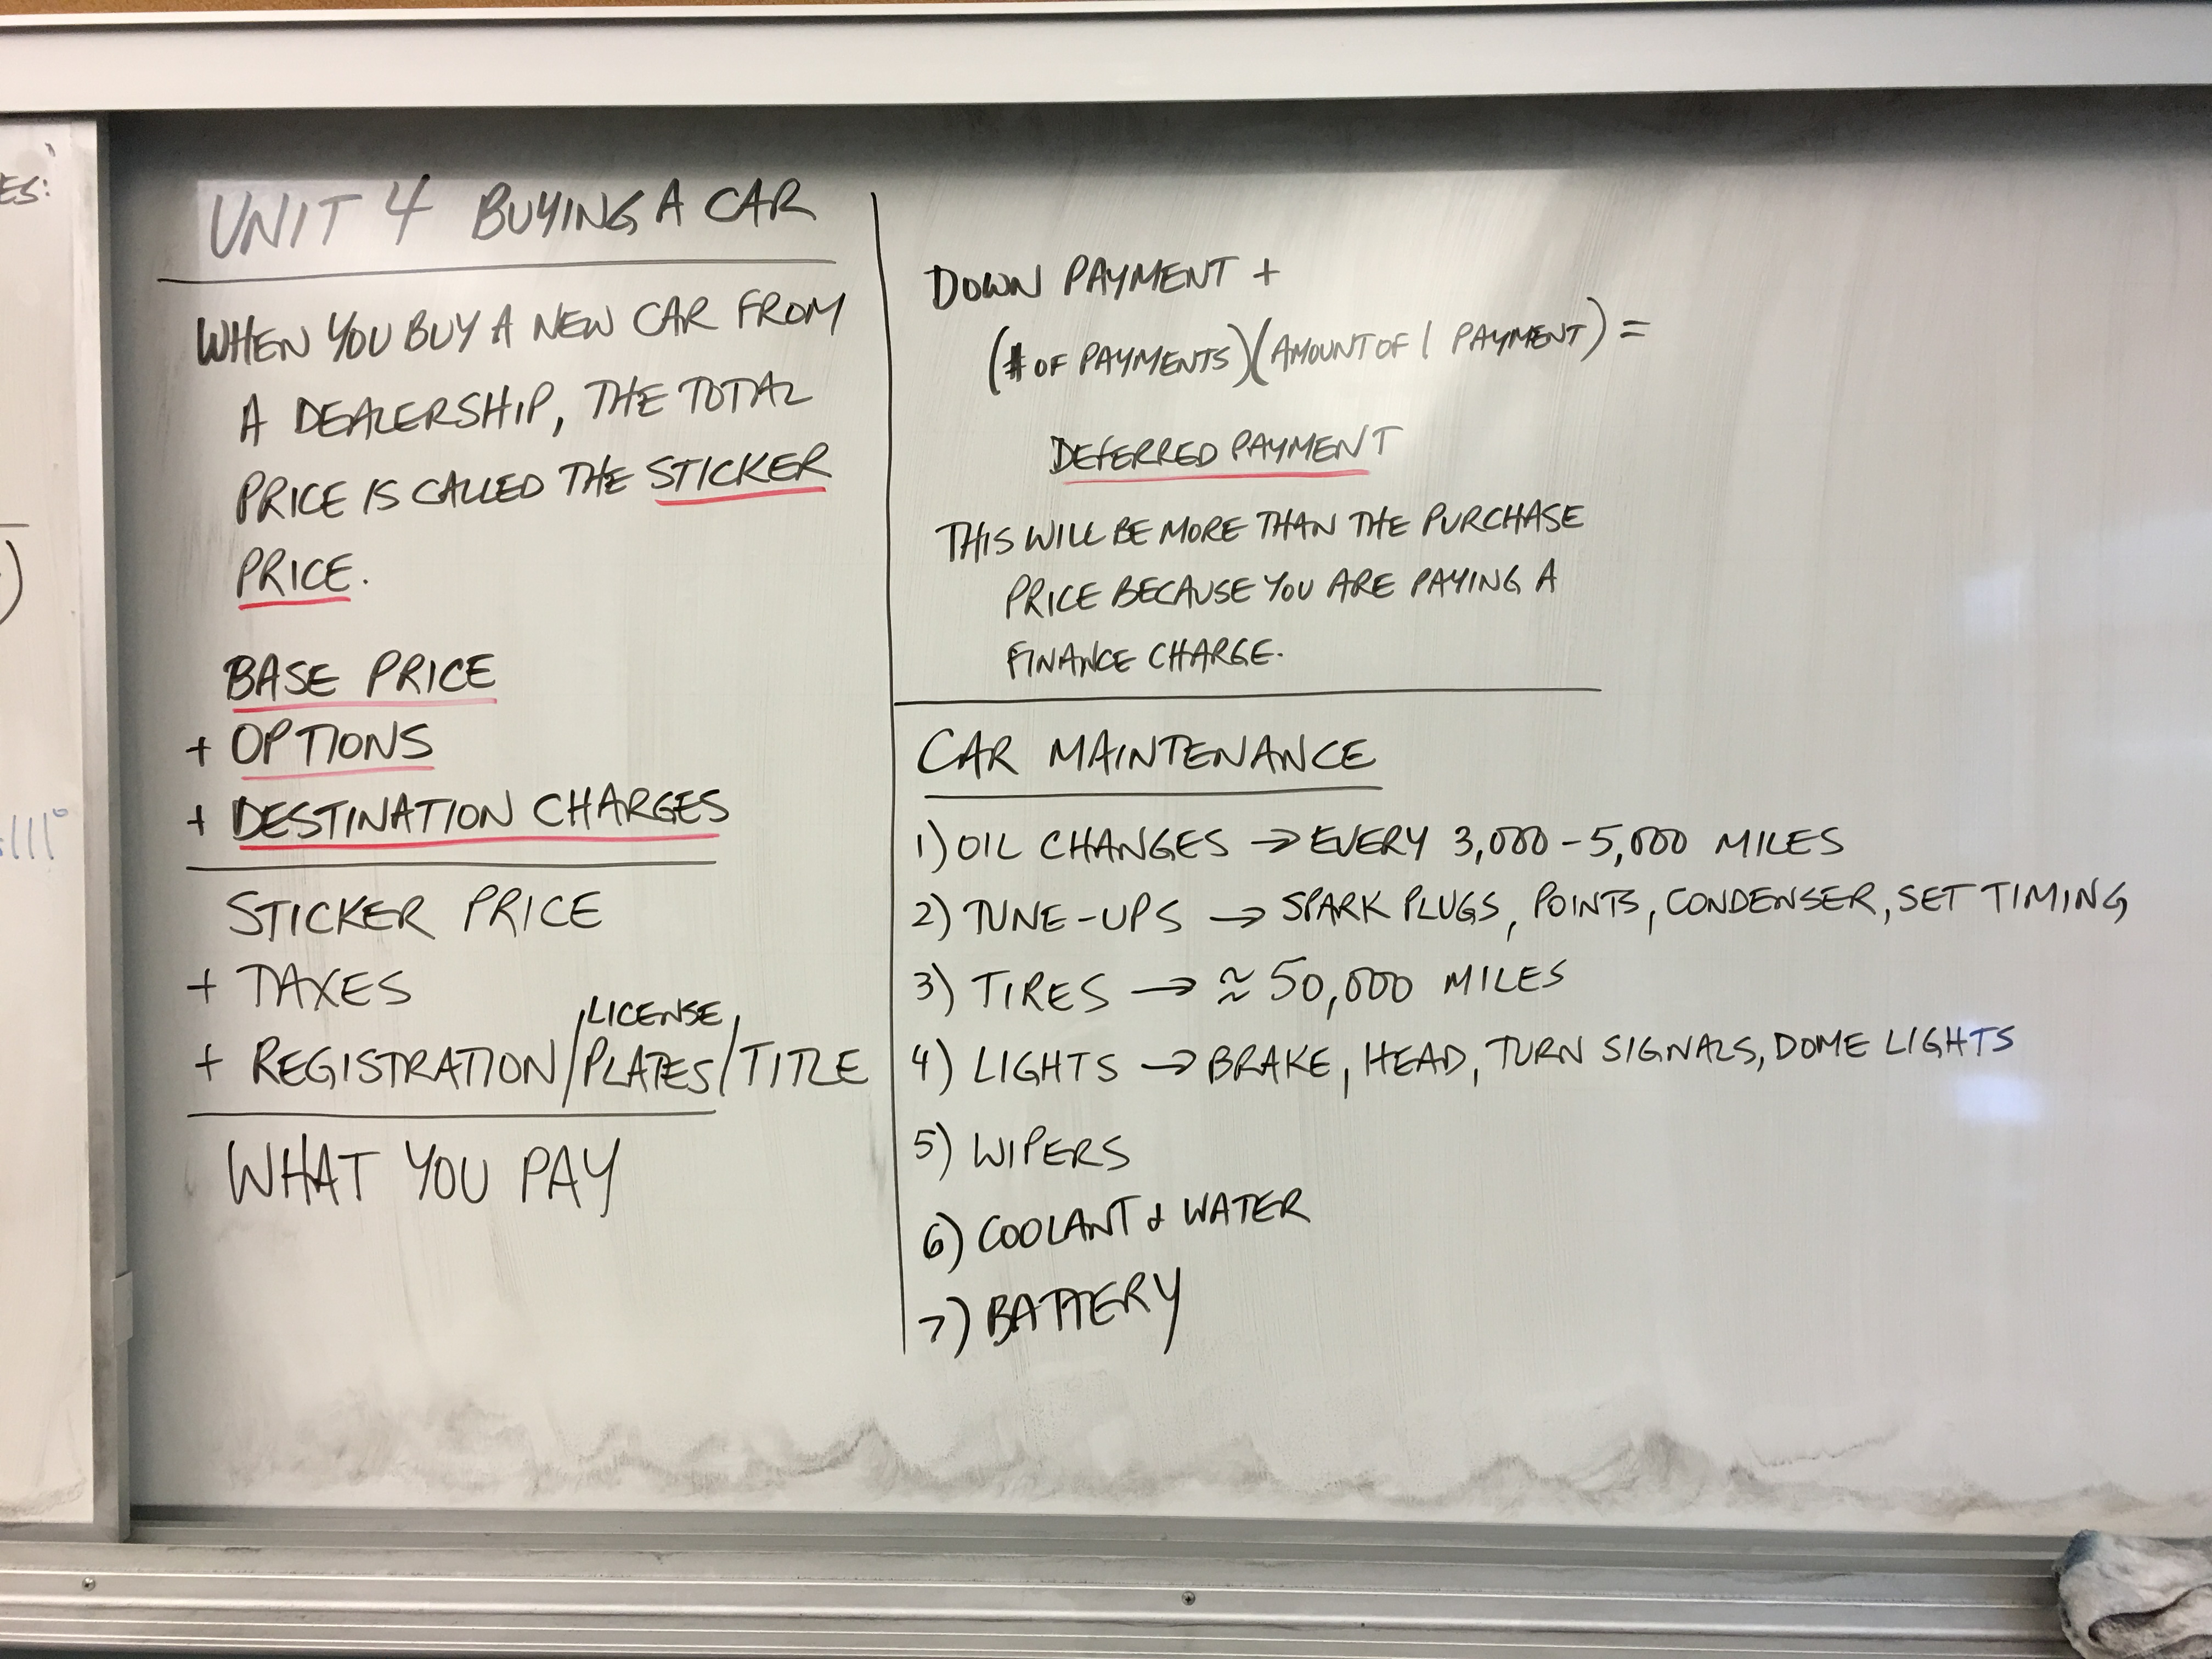 ES:
111°
UNIT 4 BUYING A CAR
WHEN YOU BUY A NEW CAR FROM
A DEALERSHIP, THE TOTAL
PRICE IS CALLED THE STICKER
PRICE.
BASE PRICE
+ OPTIONS
+ DESTINATION CHARGES
STICKER PRICE
+ TAXES
LICENSE
+ REGISTRATION/PLATES/TITLE
WHAT YOU PAY
DOWN PAYMENT +
(# OF PAYMENTS)(AMOUNT OF 1 PAYMENT) =
DEFERRED PAYMENT
THIS WILL BE MORE THAN THE PURCHASE
PRICE BECAUSE YOU ARE PAYING A
FINANCE CHARGE.
CAR MAINTENANCE
1) OIL CHANGES → EVERY 3,000 - 5,000 MILES
2) TUNE-UPS → SPARK PLUGS, POINTS, CONDENSER, SET TIMING
3) TIRES → ≈ 50,000 MILES
4) LIGHTS → BRAKE, HEAD, TURN SIGNALS, DOME LIGHTS
5) WIPERS
6) COOLANT & WATER
7) BATTERY